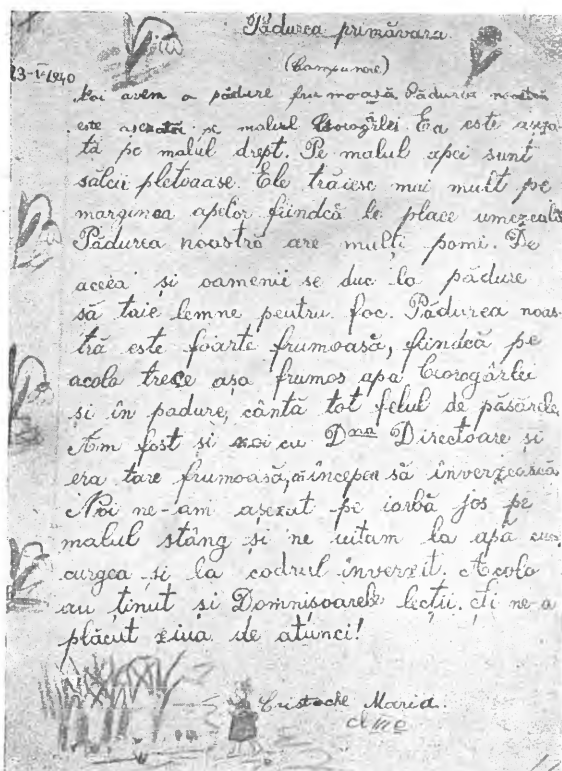 Pădurea primăvara.
(Compunere)
23-V-1940
Noi avem o pădure frumoasă Pădurea noastră
este aşezată pe malul Ciorogârlei. Ea este aşeza-
tă pe malul drept. Pe malul apei sunt
sălcii pletoase. Ele trăiesc mai mult pe
marginea apelor fiindcă le place umezeala
Pădurea noastră are mulţi pomi. De
aceea şi oamenii se duc la pădure
să taie lemne pentru foc. Pădurea noas-
tră este foarte frumoasă, fiindcă pe
acolo trece aşa frumos apa Ciorogârlei
şi în padure, cântă tot felul de păsărele
Am fost şi noi cu Dna Directoare şi
era tare frumoasă, începea să înverzească
Noi ne-am aşezat pe iarbă jos pe
malul stâng şi ne uitam la apă cum
curgea şi la codrul înverzit. Acolo
au ţinut şi Domnişoarele lecţii. Şi ne-a
plăcut ziua de atunci!
Cristache Maria.